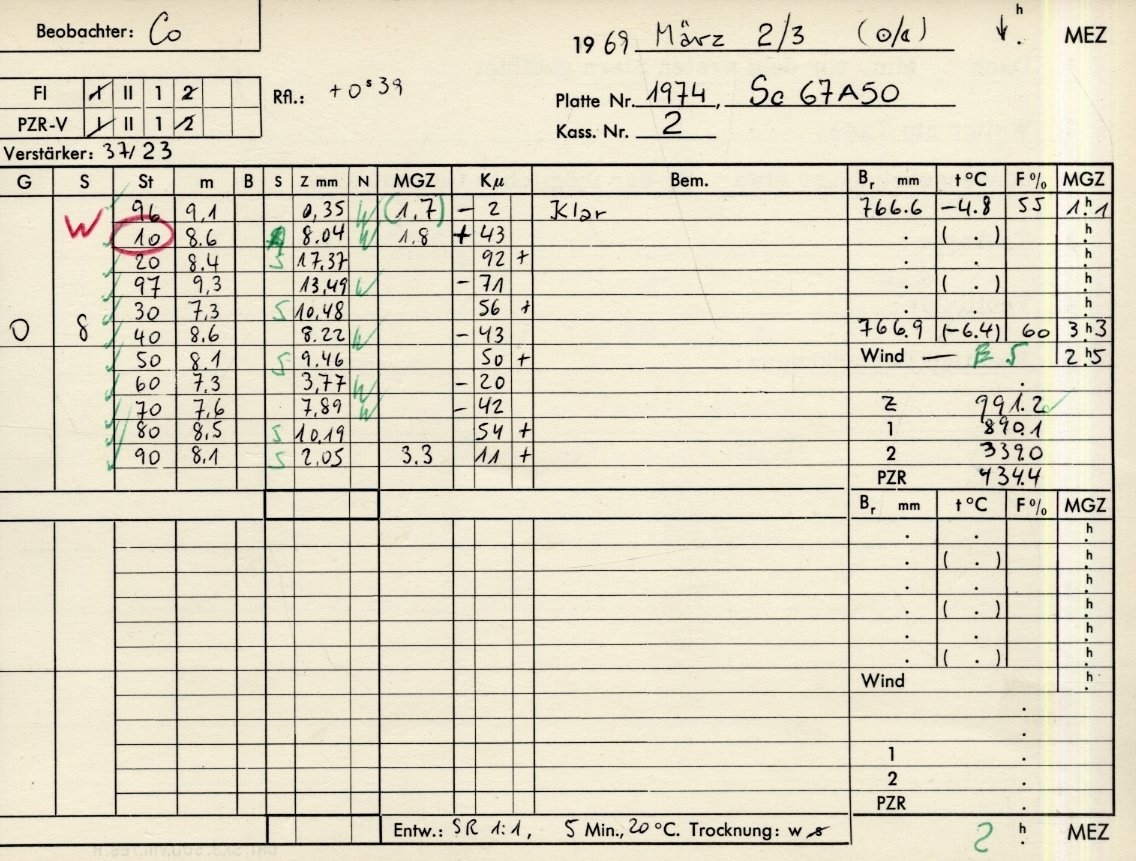 Beobachter: Co
1969 März 2/3 (o/a) ↓ . h MEZ
FI I II 1 2
PZR-V I II 1 2
Rfl.: +0ˢ39
Platte Nr. 1974, Sc 67A50
Kass. Nr. 2
Verstärker: 37/23
G S St m B S Z mm N MGZ Kμ Bem. Br mm t°C F% MGZ
W 96 9,1 0,35 W (1,7) - 2 Klar 766.6 -4.8 55 1h1
10 8.6 8.04 W 1.8 + 43 . ( . ) h
20 8.4 S 17,37 92 + . . h
97 9,3 13,49 W - 71 . ( . ) h
30 7,3 S 10,48 56 + . . h
0 8 40 8.6 8.22 W - 43 766.9 (-6.4) 60 3h3
50 8.1 S 9.46 50 + Wind — E 5 2h5
60 7,3 3,77 W - 20 .
70 7,6 7,89 W - 42 Z 991.2
80 8,5 S 10,19 54 + 1 890.1
90 8.1 S 2,05 3.3 11 + 2 339.0
PZR 434.4
Br mm t°C F% MGZ
. . h
. ( . ) h
. . h
. ( . ) h
. . h
. ( . ) h
Wind h
.
.
1 .
2 .
PZR .
Entw.: SR 1:1, 5 Min., 20 °C. Trocknung: w s 2 h MEZ